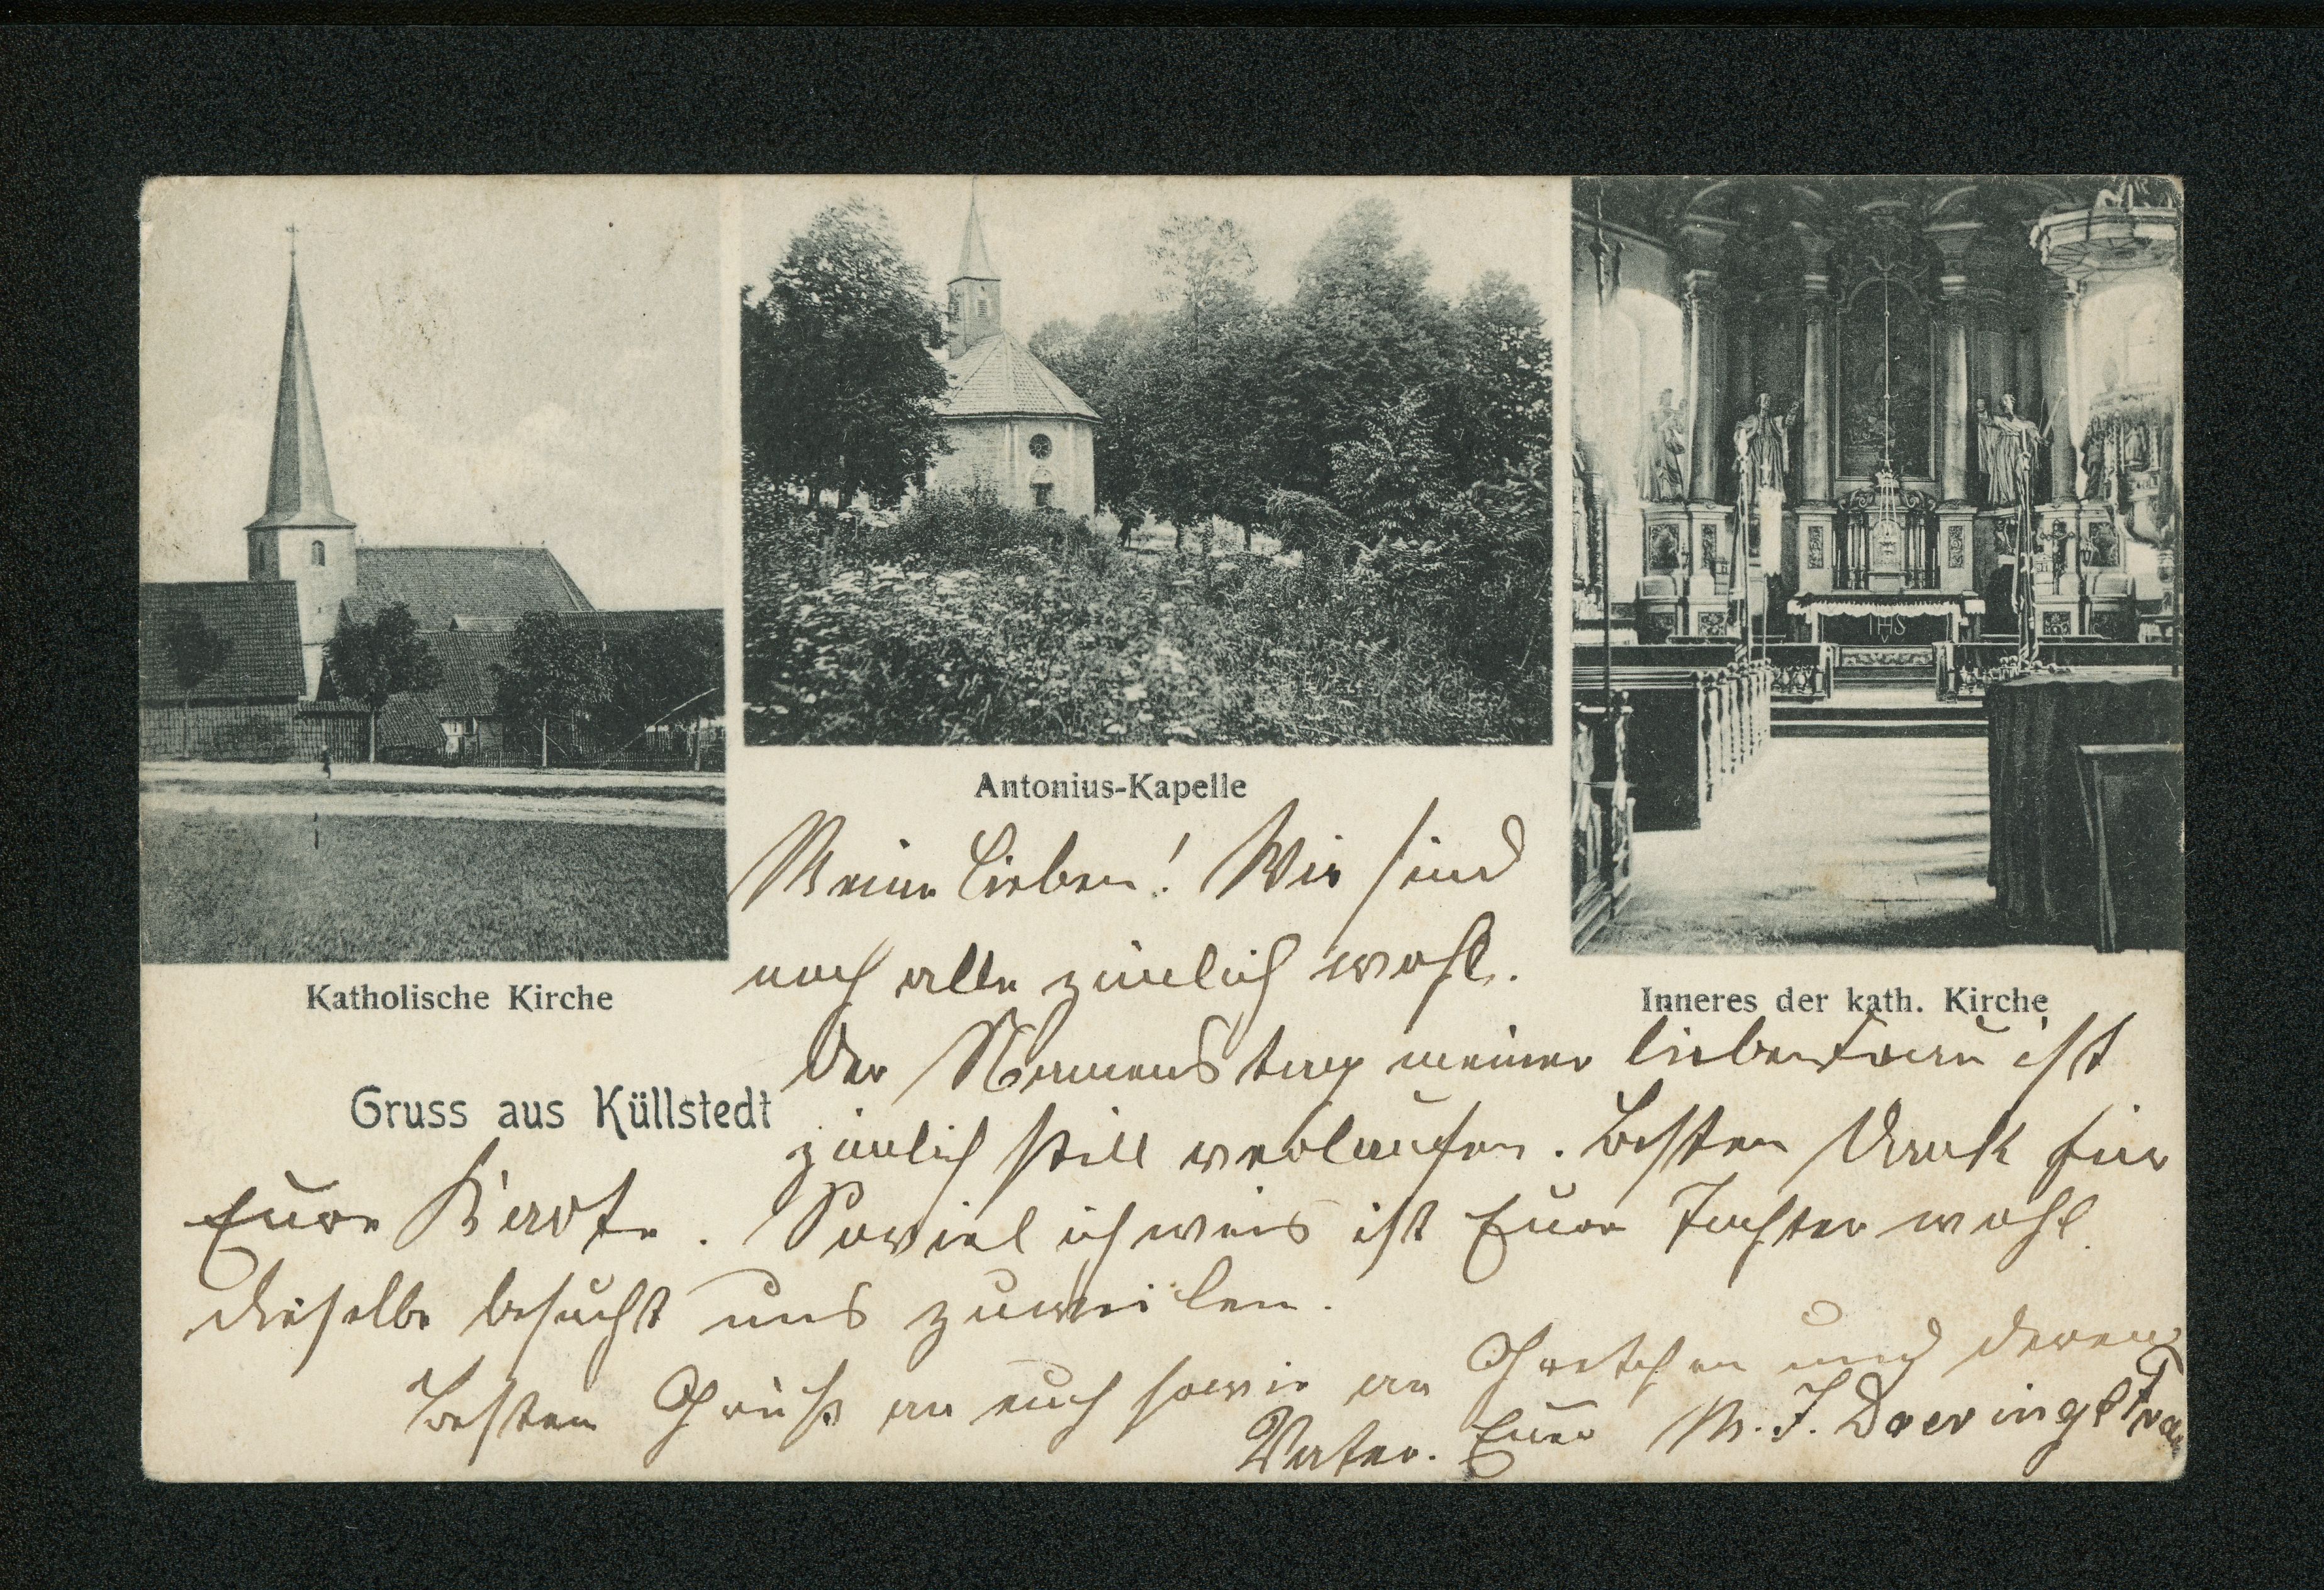 Antonius-Kapelle
Katholische Kirche
Inneres der kath. Kirche
IHS
Gruss aus Küllstedt
Meine Lieben! Wir sind
noch alle zimlich wohl.
Der Namenstag meiner lieben Frau ist
zimlich still verlaufen. Besten Dank für
Eure Karte. Soviel ich weis ist Eure Tochter wohl.
dieselbe besucht uns zuweilen.
Besten Gruß an euch sowie an Gretchen und deren
Vater. Euer M. J. Doering & Frau